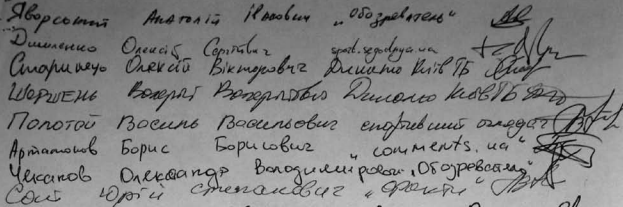 Яворський Анатолій Іванович „Обозреватель"
Димленко Олексій Сергійович sport.segodnya.ua
Старинець Олексій Вікторович Динамо Київ ТБ
Шершень Валерій Валерійович Динамо Київ ТБ
Полотой Василь Васильович спортивний оглядач
Артамонов Борис Борисович „comments.ua"
Чеканов Олександр Володимирович „Обозреватель"
Саит Юрій Степанович „Факти"